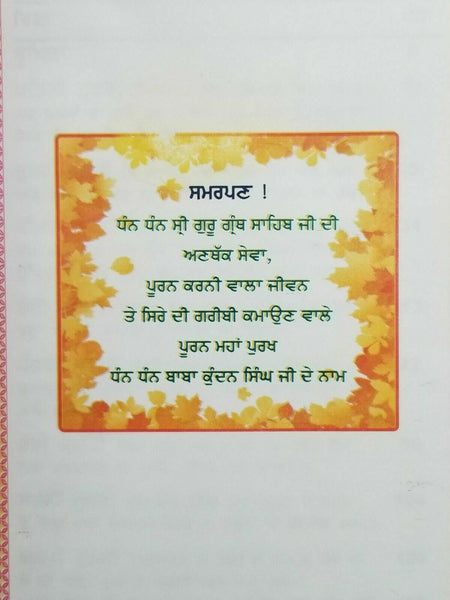 ਸਮਰਪਣ !
ਧੰਨ ਧੰਨ ਸ੍ਰੀ ਗੁਰੂ ਗ੍ਰੰਥ ਸਾਹਿਬ ਜੀ ਦੀ
ਅਣਥੱਕ ਸੇਵਾ,
ਪੂਰਨ ਕਰਨੀ ਵਾਲਾ ਜੀਵਨ
ਤੇ ਸਿਰੇ ਦੀ ਗਰੀਬੀ ਕਮਾਉਣ ਵਾਲੇ
ਪੂਰਨ ਮਹਾਂ ਪੁਰਖ
ਧੰਨ ਧੰਨ ਬਾਬਾ ਕੁੰਦਨ ਸਿੰਘ ਜੀ ਦੇ ਨਾਮ